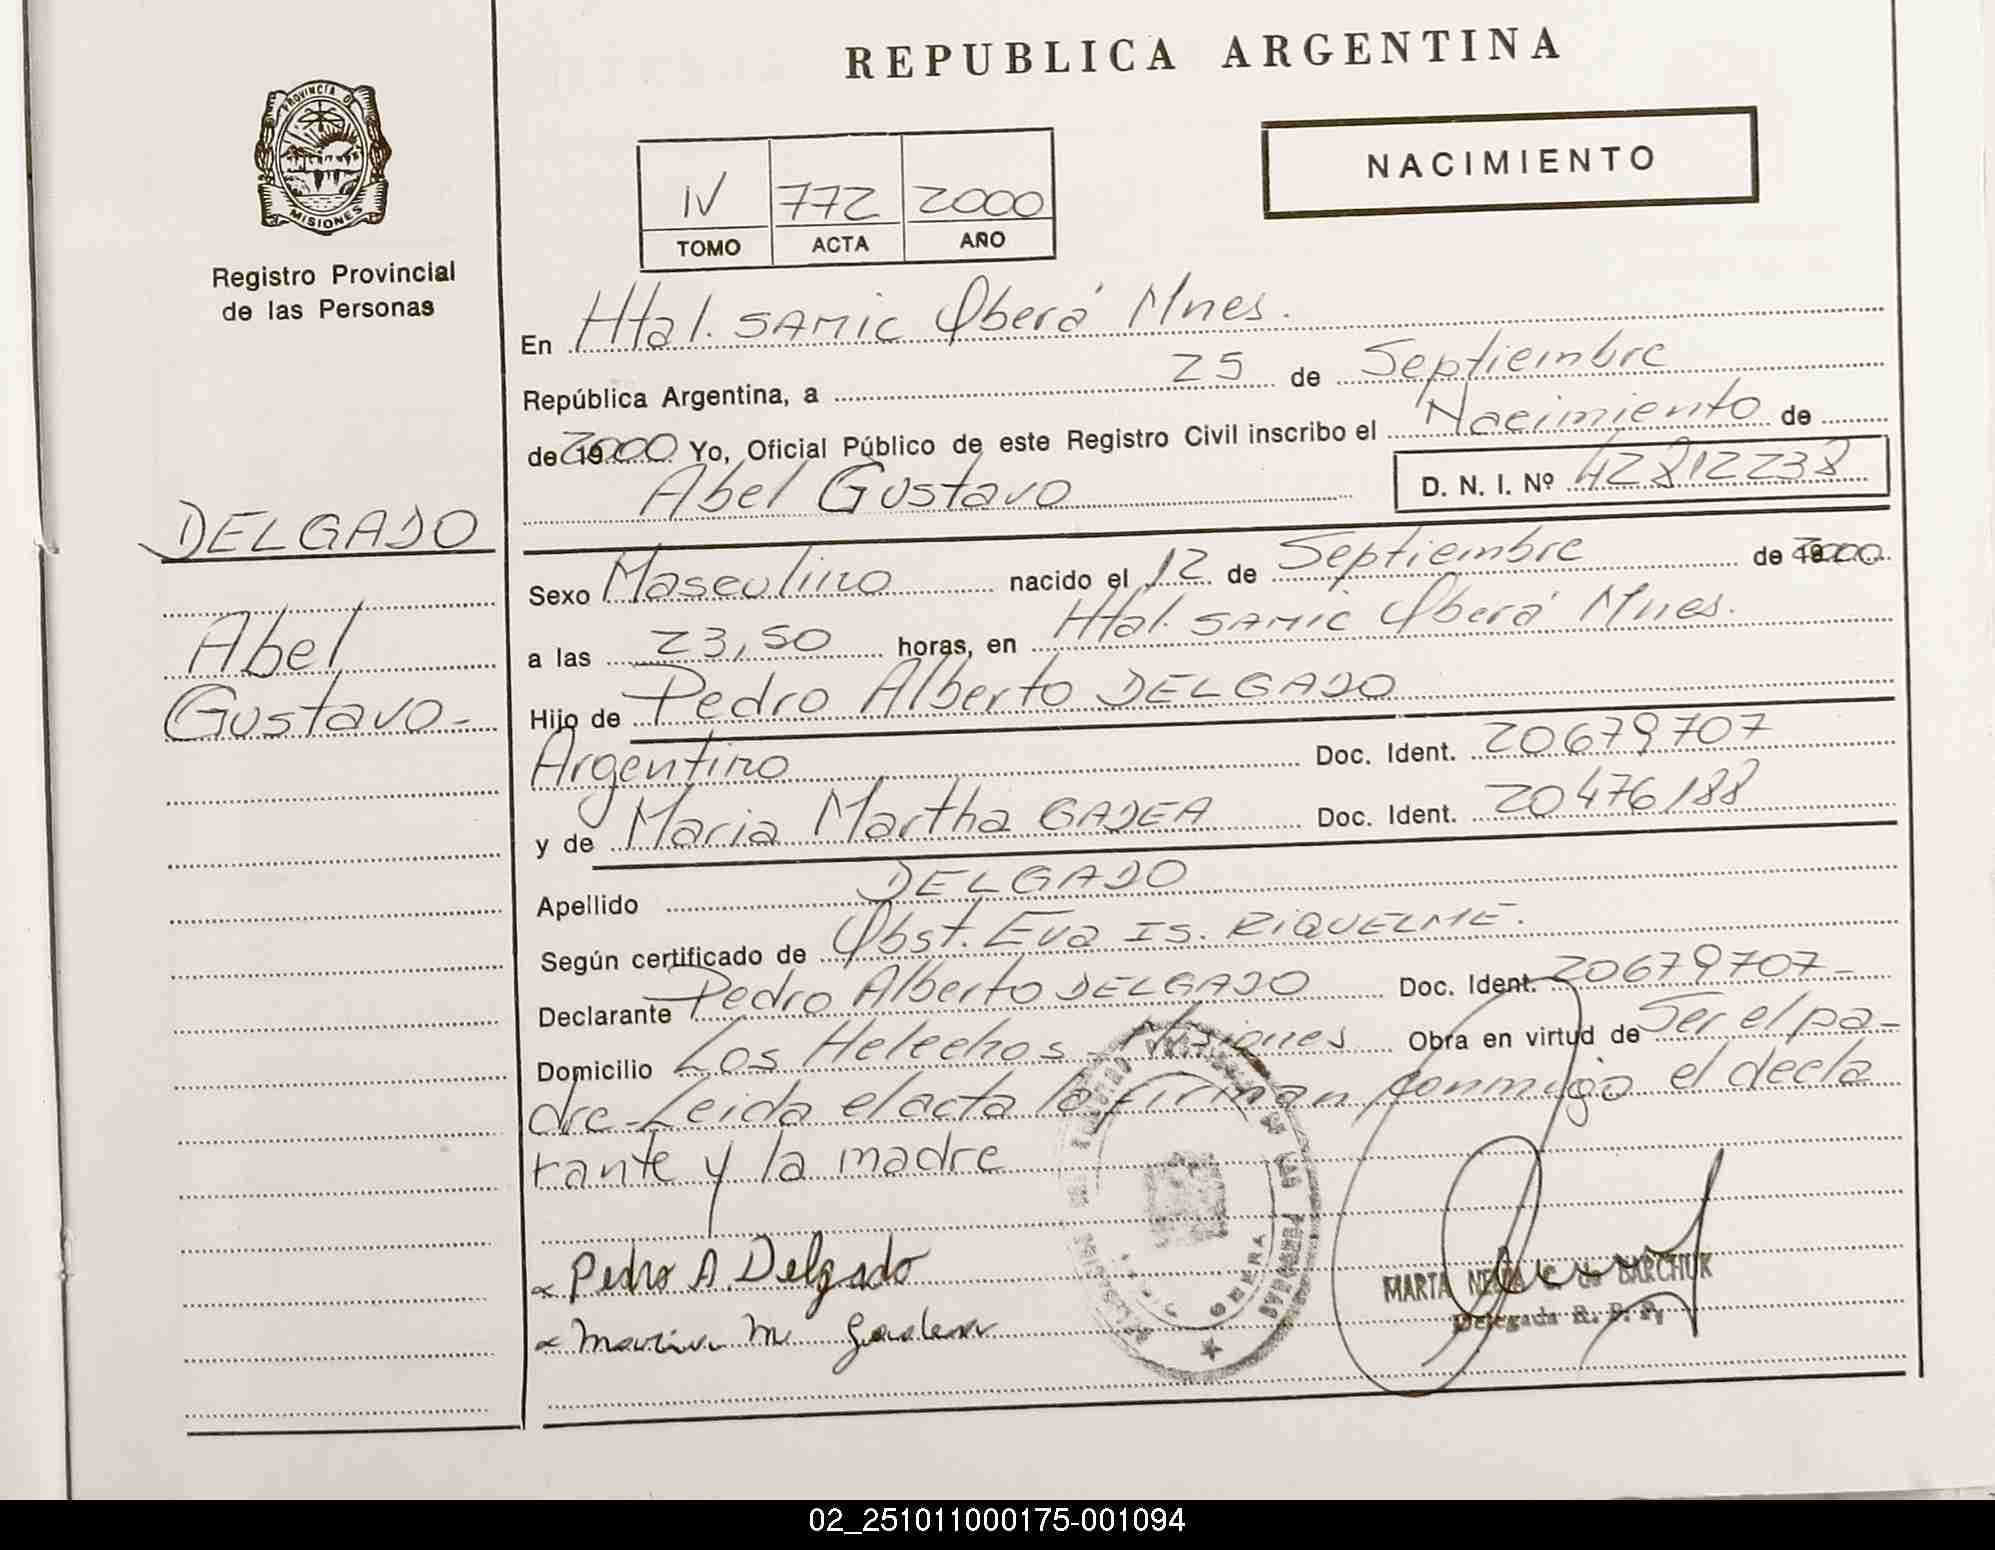 REPUBLICA ARGENTINA
PROVINCIA DE
MISIONES
Registro Provincial
de las Personas
NACIMIENTO
IV 772 2000
TOMO ACTA AÑO
En Htal. SAMIC Oberá Mnes.
República Argentina, a 25 de Septiembre
de 2000 Yo, Oficial Público de este Registro Civil inscribo el Nacimiento de
Abel Gustavo D. N. I. Nº 42812238
DELGADO
Abel
Gustavo.=
Sexo Masculino nacido el 12 de Septiembre de 2000
a las 23,50 horas, en Htal. SAMIC Oberá Mnes.
Hijo de Pedro Alberto DELGADO
Argentino Doc. Ident. 20679707
y de Maria Martha GADEA Doc. Ident. 20476188
Apellido DELGADO
Según certificado de Obst. Eva Is. RIQUELME.
Declarante Pedro Alberto DELGADO Doc. Ident. 20679707-
Domicilio Los Helechos - Misiones Obra en virtud de Ser el pa-
dre-Leida el acta la firman conmigo el decla
rante y la madre
Pedro A. Delgado
Maria M. Gadea
MARTA C. de BARCHUK
Delegada R. P. P.
DE LAS PERSONAS
OBERA
02_251011000175-001094